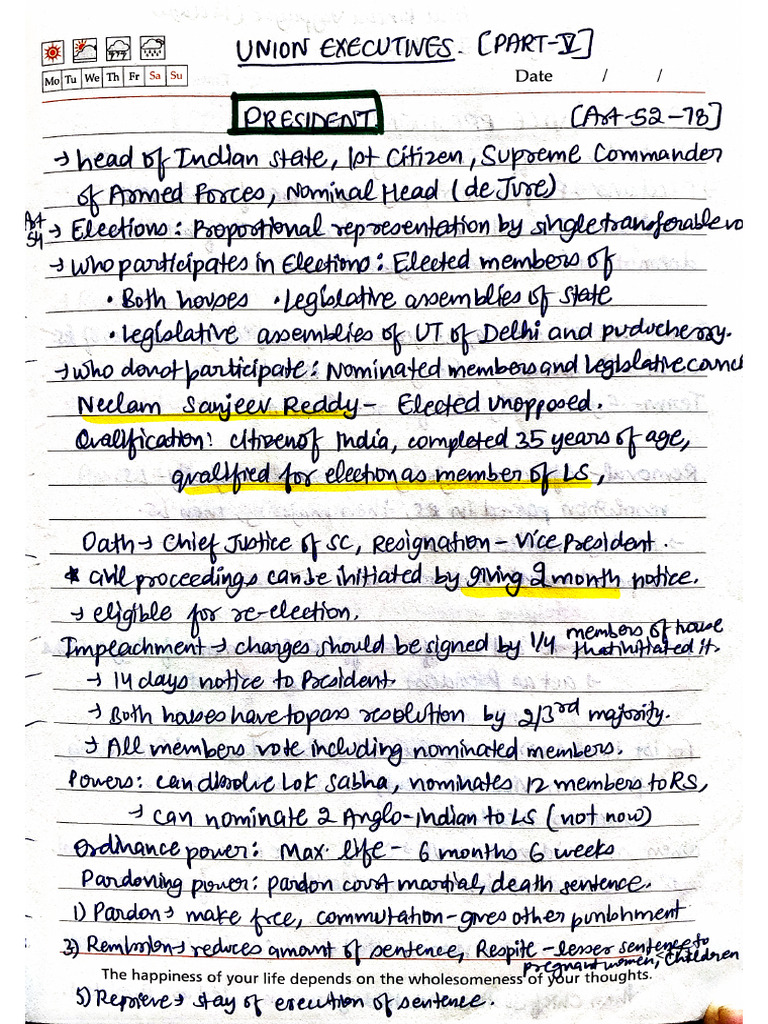 UNION EXECUTIVES. [PART-V]
Mo Tu We Th Fr Sa Su
Date / /
PRESIDENT [Art-52-78]
→ head of Indian state, 1st Citizen, Supreme Commander
of Armed Forces, Nominal Head (de Jure)
Art 54 → Elections: Proportional representation by single transferable vo
→ Who participates in Elections: Elected members of
• Both houses • Legislative assemblies of state
• Legislative assemblies of UT of Delhi and puducherry.
→ who donot participate: Nominated members and legislative counci
Neelam Sanjeev Reddy - Elected unopposed.
Qualification: citizen of India, completed 35 years of age,
qualified for election as member of LS,
Oath → Chief Justice of SC, Resignation - Vice President.
* civil proceedings can be initiated by giving 2 month notice.
→ eligible for re-election.
Impeachment → charges should be signed by 1/4 members of house that initiated it.
→ 14 days notice to President
→ Both houses have to pass resolution by 2/3rd majority.
→ All members vote including nominated members.
Powers: can dissolve Lok Sabha, nominates 12 members to RS,
→ can nominate 2 Anglo-Indian to LS (not now)
Ordinance power: Max. life - 6 months 6 weeks
Pardoning power: pardon court martial, death sentence.
1) Pardon → make free, commutation - gives other punishment
3) Remission → reduces amount of sentence, Respite - lesser sentence to pregnant women, children
The happiness of your life depends on the wholesomeness of your thoughts.
5) Reprieve → stay of execution of sentence.